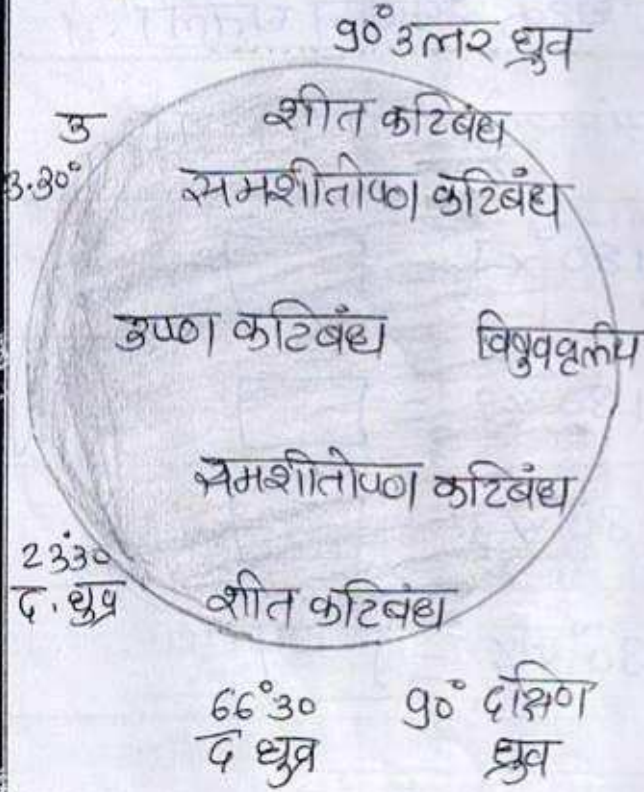 90° उत्तर ध्रुव
शीत कटिबंध
उ
3.30°
समशीतोष्ण कटिबंध
उष्ण कटिबंध विषुववृत्तीय
समशीतोष्ण कटिबंध
23°30
द. ध्रुव
शीत कटिबंध
66°30 90° दक्षिण
द ध्रुव ध्रुव